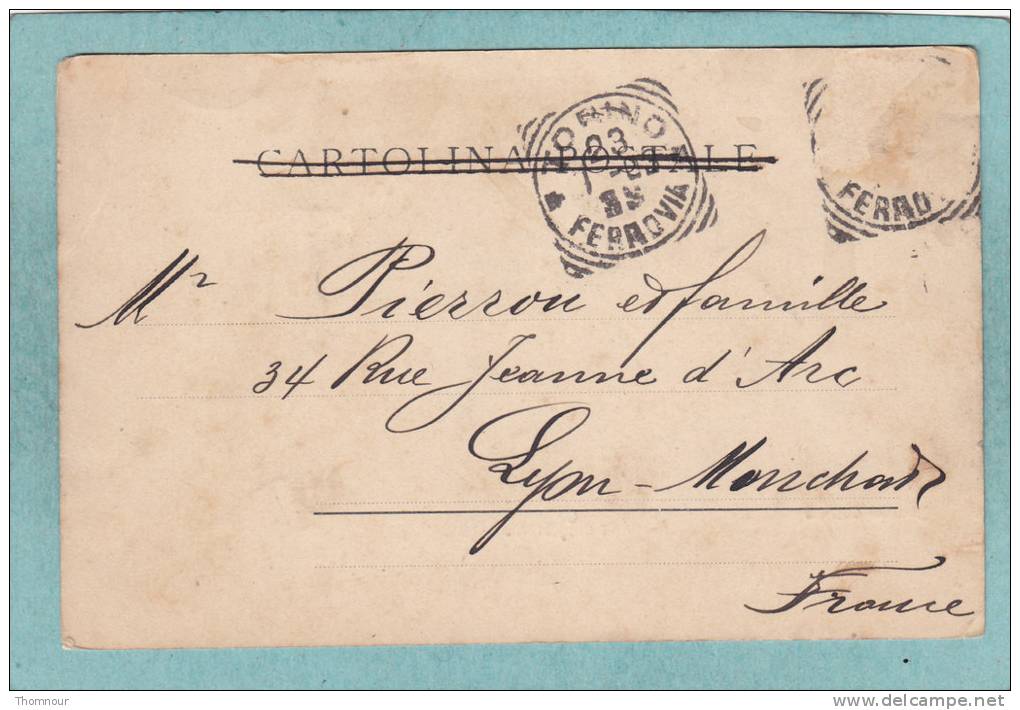 CARTOLINA POSTALE
TORINO
23
FERROVIA
FERRO
Mr Pierron et famille
34 Rue Jeanne d'Arc
Lyon - Monchat
France
Thomnour
www.delcampe.net